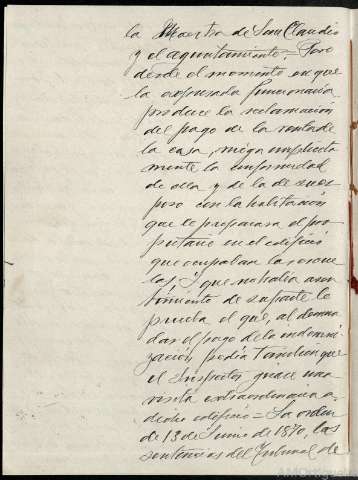 la Maestra de San Claudio
y el ayuntamiento. Pero
desde el momento en que
la expresada funcionaria
produce la reclamación
del pago de la renta de
la casa, niega implícita
mente la conformidad
de ella y de la de su es
poso con la habitación
que le preparara el pro
pietario en el edificio
que ocupaban las escue
las. Y que no había asen
timiento de su parte lo
prueba el que, al deman
dar el pago de la indemni
zación pedía tambien que
el Inspector girase una
visita extraordinaria a
dicho colegio = La orden
de 13 de Junio de 1870, las
sentencias del Tribunal de
AMOrtigueira